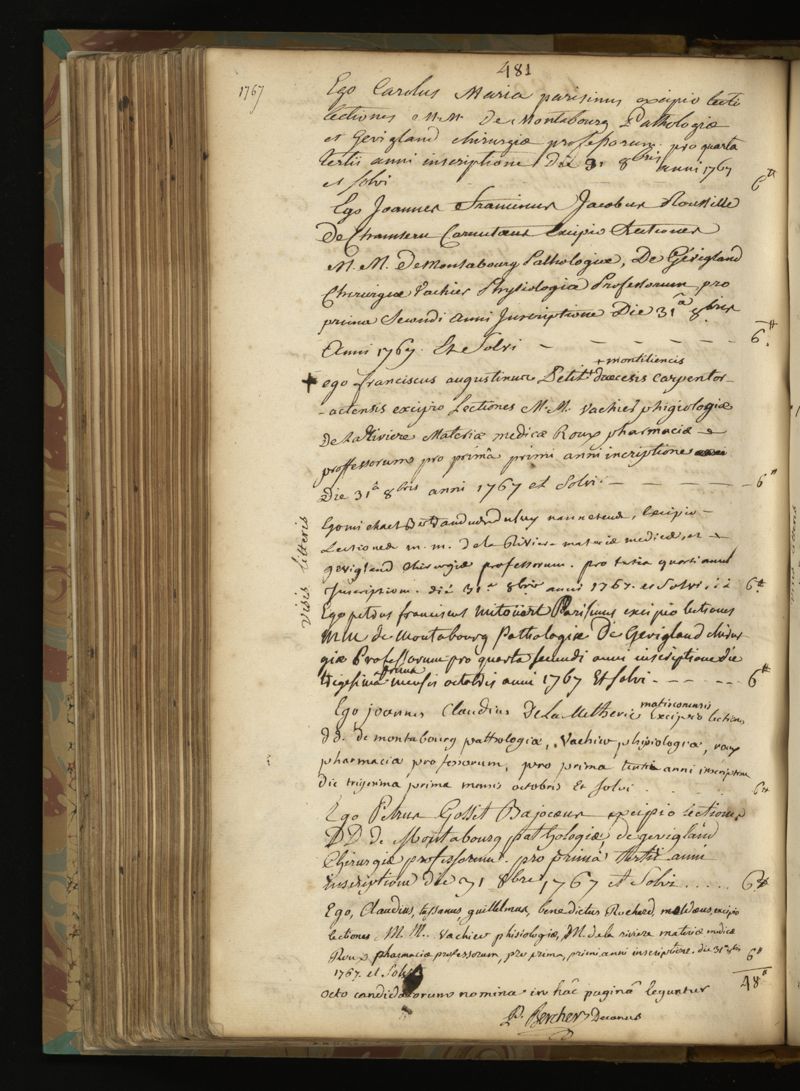 481
1767
Ego Carolus Maria parisinus excipio lecti
lectiones M.M. De Montabourg Pathologiæ
et Gevigland chirurgiæ professorum pro quarta
tertii anni inscriptione die 31 8bris anni 1767
et solvi 6tt
Ego Joannes Franciscus Jacobus Roussille
De Chamseru Carnutæus Excipio Lectiones
M. M. De Montabourg Pathologiæ, De Gévigland
Chirurgiæ Vachier Physiologiæ Professorum pro
prima Secundi Anni Inscriptione Die 31â 8bris
Anni 1767. Et Solvi — — — — — — 6tt
+ montiliencis
+ ego franciscus augustinus Petit + diæcesis carpentor-
-actensis excipio Lectiones M.M. vachier phigiologiæ
De La Riviere Materiæ medicæ Roux pharmaciæ
proffessorums pro primâ primi anni incriptione
Die 31â 8bris anni 1767 et Solvi — — — — — 6tt
visis litteris
Ego michael nannetensis, Excipio
Lectiones m. m. de la Riviere materiæ medicæ, et
gevigland chirurgiæ professorum. pro tertia quarti anni
Inscriptione. die 31a 8bris anni 1767. et Solvi. 6tt
Ego petrus franciscus Mitouart Parisinus excipio lectiones
M.M de Montabourg Pathologiæ De Gevigland chirur
giæ Professorum pro quarta secundi anni inscriptione die
trigesimâ prima mensis octobris anni 1767 Et solvi - - - - - - 6tt
matisconensis
Ego joannes Claudius De La Metherie Excipio lectiones
DD. de montabourg pathologiæ, Vachier phisiologiæ, roux
pharmaciæ professorum, pro prima tertii anni inscriptione
die trigesima prima mensis octobris Et solvi 6tt
Ego Petrus Gosset Bajocæus excipio lectiones
DD de Montabourg pathologiæ, de gevigland
Chirurgiæ professorum. pro primâ tertii anni
inscriptione die 31 8bris 1767 et Solvi ..... 6tt
Ego, Claudius, tussanus, guillelmus, benedictus Ruchard, meldæus, excipio
lectiones M. M. Vachier phisiologiæ, M. de la riviere materiæ medicæ
Roux pharmaciæ professorum, pro prima, primi anni inscriptione. die 31a 8bris
1767. et Solvi 6tt
48tt
octo candidatorum nomina in hâc paginâ leguntur
Bercher Decanus